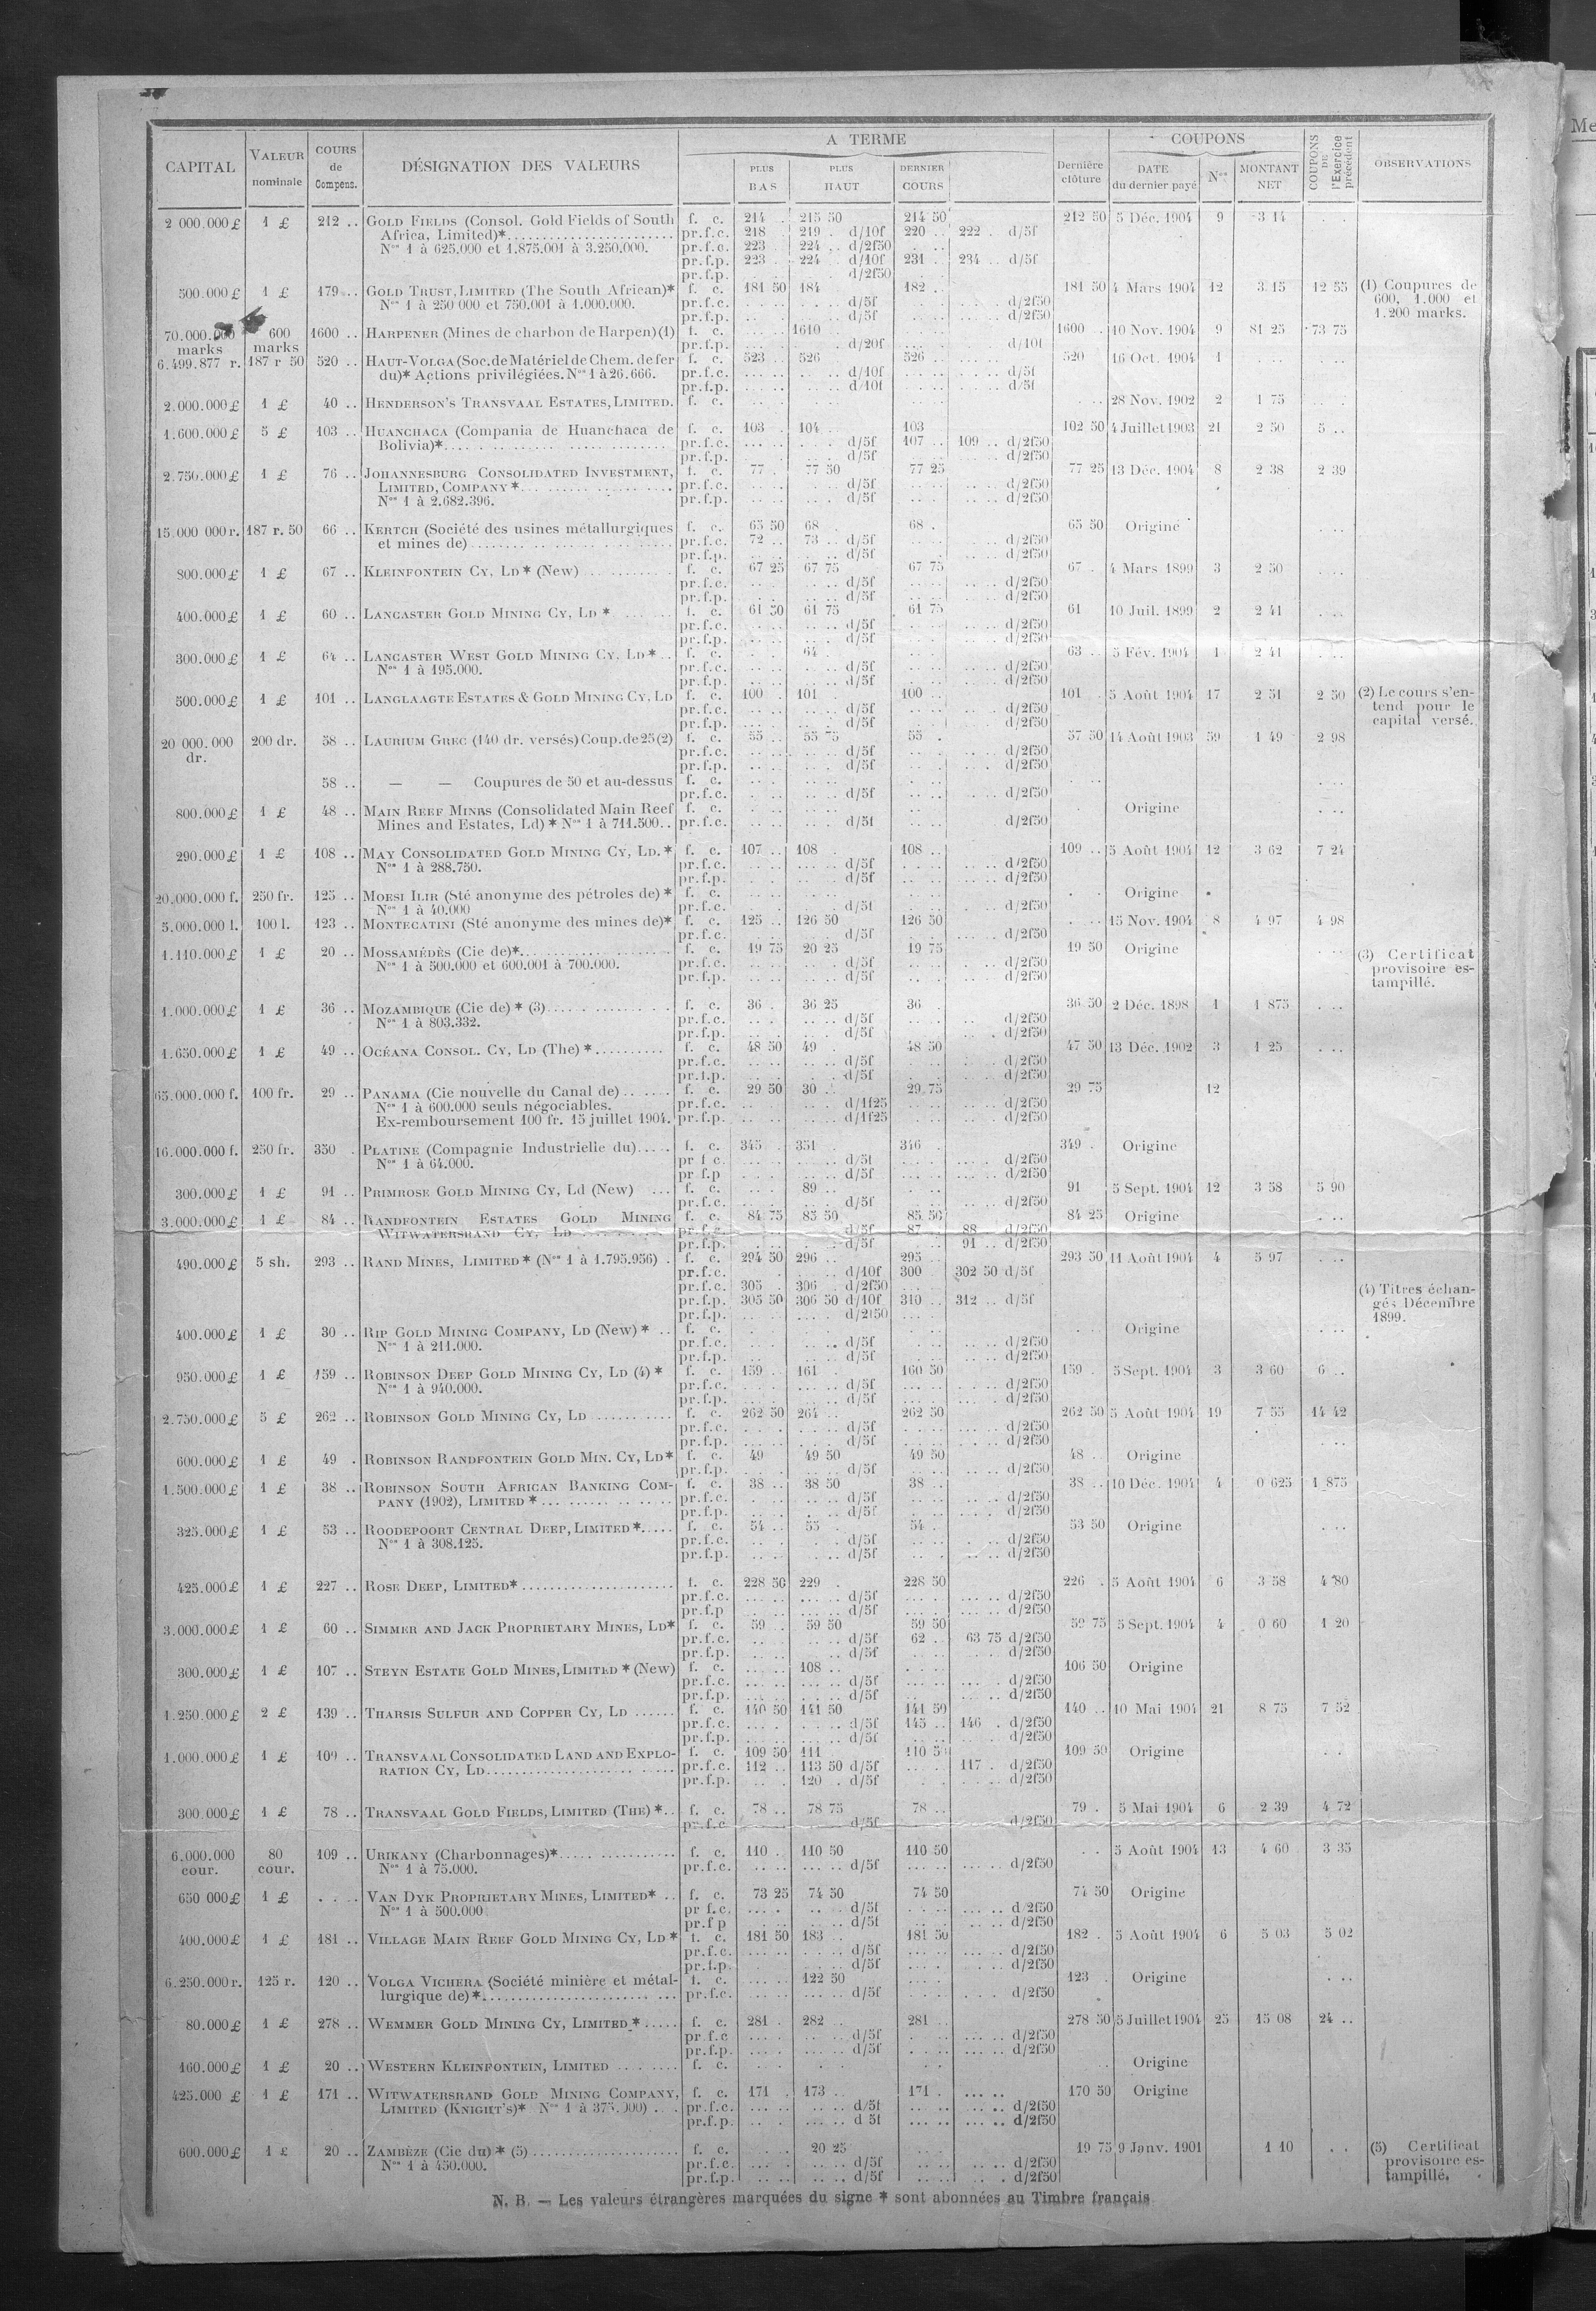 CAPITAL VALEUR nominale COURS de Compens. DÉSIGNATION DES VALEURS A TERME PLUS BAS PLUS HAUT DERNIER COURS Dernière clôture COUPONS DATE du dernier payé Nos MONTANT NET COUPONS DE l'Exercice précédent OBSERVATIONS
2 000.000 £ 1 £ 212 .. GOLD FIELDS (Consol. Gold Fields of South f. c. 214 . 215 50 214 50 212 50 5 Déc. 1904 9 3 14
Africa, Limited)* pr.f.c. 218 . 219 . d/10f 220 .. 222 . d/5f
Nos 1 à 625.000 et 1.875.001 à 3.250.000. pr.f.c. 223 224 .. d/2f50
pr.f.p. 223 . 224 .. d/10f 231 . 234 .. d/5f
pr.f.p. d/2f50
500.000 £ 1 £ 179 .. GOLD TRUST, LIMITED (The South African)* f. c. 181 50 184 182 .. 181 50 4 Mars 1904 12 3 15 12 55 (1) Coupures de
Nos 1 à 250 000 et 750.001 à 1.000.000. pr.f.c. d/5f d/2f50 600, 1.000 et
pr.f.p. d/5f d/2f50 1.200 marks.
70.000.000 marks 600 marks 1600 .. HARPENER (Mines de charbon de Harpen)(1) f. c. 1610 1600 .. 10 Nov. 1904 9 81 25 73 75
pr.f.p. d/20f d/10f
6.499.877 r. 187 r 50 520 .. HAUT-VOLGA (Soc. de Matériel de Chem. de fer f. c. 523 .. 526 526 .. 520 16 Oct. 1904 1
du)* Actions privilégiées. Nos 1 à 26.666. pr.f.c. d/10f d/5f
pr.f.p. d/10f d/5f
2.000.000 £ 1 £ 40 .. HENDERSON'S TRANSVAAL ESTATES, LIMITED. f. c. 28 Nov. 1902 2 1 75
1.600.000 £ 5 £ 103 .. HUANCHACA (Compania de Huanchaca de f. c. 103 . 104 .. 103 102 50 4 Juillet 1903 21 2 50 5 ..
Bolivia)* pr.f.c. d/5f 107 .. 109 .. d/2f50
pr.f.p. d/5f d/2f50
2.750.000 £ 1 £ 76 .. JOHANNESBURG CONSOLIDATED INVESTMENT, f. c. 77 . 77 50 77 25 77 25 13 Déc. 1904 8 2 38 2 39
LIMITED, COMPANY * pr.f.c. d/5f d/2f50
Nos 1 à 2.682.396. pr.f.p. d/5f d/2f50
15.000 000 r. 187 r. 50 66 .. KERTCH (Société des usines métallurgiques f. c. 65 50 68 . 68 . 65 50 Origine
et mines de) pr.f.c. 72 .. 73 .. d/5f d/2f50
pr.f.p. d/5f d/2f50
800.000 £ 1 £ 67 .. KLEINFONTEIN CY, LD * (New) f. c. 67 25 67 75 67 75 67 . 4 Mars 1899 3 2 50
pr.f.c. d/5f d/2f50
pr.f.p. d/5f d/2f50
400.000 £ 1 £ 60 .. LANCASTER GOLD MINING CY, LD * f. c. 61 50 61 75 61 75 61 10 Juil. 1899 2 2 41
pr.f.c. d/5f d/2f50
pr.f.p. d/5f d/2f50
300.000 £ 1 £ 64 .. LANCASTER WEST GOLD MINING CY. LD * f. c. 64 . 63 .. 5 Fév. 1904 1 2 41
Nos 1 à 195.000. pr.f.c. d/5f d/2f50
pr.f.p. d/5f d/2f50
500.000 £ 1 £ 101 .. LANGLAAGTE ESTATES & GOLD MINING CY, LD f. c. 100 . 101 . 100 .. 101 . 5 Août 1904 17 2 51 2 50 (2) Le cours s'en-
pr.f.c. d/5f d/2f50 tend pour le
pr.f.p. d/5f d/2f50 capital versé.
20 000.000 dr. 200 dr. 58 .. LAURIUM GREC (140 dr. versés) Coup. de 25 (2) f. c. 55 .. 55 75 55 . 57 50 14 Août 1903 59 1 49 2 98
pr.f.c. d/5f d/2f50
pr.f.p. d/5f d/2f50
58 .. — — Coupures de 50 et au-dessus f. c.
pr.f.c. d/5f d/2f50
800.000 £ 1 £ 48 .. MAIN REEF MINES (Consolidated Main Reef f. c. Origine
Mines and Estates, Ld) * Nos 1 à 711.500 .. pr.f.c. d/5f d/2f50
290.000 £ 1 £ 108 .. MAY CONSOLIDATED GOLD MINING CY, LD. * f. c. 107 .. 108 . 108 .. 109 .. 5 Août 1904 12 3 62 7 24
Nos 1 à 288.750. pr.f.c. d/5f d/2f50
pr.f.p. d/5f d/2f50
20.000.000 f. 250 fr. 125 .. MOESI ILIR (Sté anonyme des pétroles de) * f. c. Origine
Nos 1 à 40.000 pr.f.c. d/5f d/2f50
5.000.000 l. 100 l. 123 .. MONTECATINI (Sté anonyme des mines de)* f. c. 125 .. 126 50 126 50 15 Nov. 1904 8 4 97 4 98
pr.f.c. d/5f d/2f50
1.110.000 £ 1 £ 20 .. MOSSAMÉDÈS (Cie de)* f. c. 19 75 20 25 19 75 19 50 Origine (3) Certificat
Nos 1 à 500.000 et 600.001 à 700.000. pr.f.c. d/5f d/2f50 provisoire es-
pr.f.p. d/5f d/2f50 tampillé.
1.000.000 £ 1 £ 36 .. MOZAMBIQUE (Cie de) * (3) f. c. 36 . 36 25 36 . 36 50 2 Déc. 1898 1 1 875
Nos 1 à 803.332. pr.f.c. d/5f d/2f50
pr.f.p. d/5f d/2f50
1.650.000 £ 1 £ 49 .. OCÉANA CONSOL. CY, LD (The) * f. c. 48 50 49 . 48 50 47 50 13 Déc. 1902 3 1 25
pr.f.c. d/5f d/2f50
pr.f.p. d/5f d/2f50
65.000.000 f. 100 fr. 29 .. PANAMA (Cie nouvelle du Canal de) f. c. 29 50 30 .. 29 75 29 75 12
Nos 1 à 600.000 seuls négociables. pr.f.c. d/1f25 d/2f50
Ex-remboursement 100 fr. 15 juillet 1904. pr.f.p. d/1f25 d/2f50
16.000.000 f. 250 fr. 350 . PLATINE (Compagnie Industrielle du) f. c. 345 . 351 346 . 349 . Origine
Nos 1 à 64.000. pr f c. d/5f d/2f50
pr f.p d/5f d/2f50
300.000 £ 1 £ 91 .. PRIMROSE GOLD MINING CY, Ld (New) f. c. 89 .. 91 5 Sept. 1904 12 3 58 5 90
pr.f.c. d/5f d/2f50
3.000.000 £ 1 £ 84 .. RANDFONTEIN ESTATES GOLD MINING f. c. 84 75 85 50 85 50 84 25 Origine
WITWATERSRAND CY, LD pr.f.c. d/5f 87 .. 88 d/2f50
pr.f.p. d/5f 91 .. d/2f50
490.000 £ 5 sh. 293 .. RAND MINES, LIMITED * (Nos 1 à 1.795.956) . f. c. 294 50 296 .. 295 .. 293 50 11 Août 1904 4 5 97
pr.f.c. d/10f 300 302 50 d/5f
pr.f.c. 305 . 306 .. d/2f50 (4) Titres échan-
pr.f.p. 305 50 306 50 d/10f 310 .. 312 .. d/5f gés Décembre
pr.f.p. d/2f50 1899.
400.000 £ 1 £ 30 .. RIP GOLD MINING COMPANY, LD (New) * .. f. c. Origine
Nos 1 à 211.000. pr.f.c. d/5f d/2f50
pr.f.p. d/5f d/2f50
950.000 £ 1 £ 159 .. ROBINSON DEEP GOLD MINING CY, LD (4) * f. c. 159 . 161 . 160 50 159 . 5 Sept. 1904 3 3 60 6 ..
Nos 1 à 940.000. pr.f.c. d/5f d/2f50
pr.f.p. d/5f d/2f50
2.750.000 £ 5 £ 262 .. ROBINSON GOLD MINING CY, LD f. c. 262 50 264 .. 262 50 262 50 5 Août 1904 19 7 55 14 42
pr.f.c. d/5f d/2f50
pr.f.p. d/5f d/2f50
600.000 £ 1 £ 49 . ROBINSON RANDFONTEIN GOLD MIN. CY, LD* f. c. 49 49 50 49 50 48 . Origine
pr.f.p. d/5f d/2f50
1.500.000 £ 1 £ 38 .. ROBINSON SOUTH AFRICAN BANKING COM- f. c. 38 .. 38 50 38 .. 38 .. 10 Déc. 1904 4 0 625 1 875
PANY (1902), LIMITED * pr.f.c. d/5f d/2f50
pr.f.p. d/5f d/2f50
325.000 £ 1 £ 53 .. ROODEPOORT CENTRAL DEEP, LIMITED * f. c. 54 .. 55 . 54 53 50 Origine
Nos 1 à 308.125. pr.f.c. d/5f d/2f50
pr.f.p. d/5f d/2f50
425.000 £ 1 £ 227 .. ROSE DEEP, LIMITED* f. c. 228 50 229 . 228 50 226 . 5 Août 1904 6 3 58 4 80
pr.f.c. d/5f d/2f50
pr.f.p d/5f d/2f50
3.000.000 £ 1 £ 60 .. SIMMER AND JACK PROPRIETARY MINES, LD* f. c. 59 .. 59 50 59 50 59 75 5 Sept. 1904 4 0 60 1 20
pr.f.c. d/5f 62 .. 63 75 d/2f50
pr.f.p. d/5f d/2f50
300.000 £ 1 £ 107 .. STEYN ESTATE GOLD MINES, LIMITED * (New) f. c. 108 .. 106 50 Origine
pr.f.c. d/5f d/2f50
pr.f.p. d/5f d/2f50
1.250.000 £ 2 £ 139 .. THARSIS SULFUR AND COPPER CY, LD f. c. 140 50 141 50 141 50 140 .. 10 Mai 1904 21 8 75 7 52
pr.f.c. d/5f 145 .. 146 . d/2f50
pr.f.p. d/5f d/2f50
1.000.000 £ 1 £ 109 .. TRANSVAAL CONSOLIDATED LAND AND EXPLO- f. c. 109 50 111 110 50 109 50 Origine
RATION CY, LD pr.f.c. 112 .. 113 50 d/5f 117 . d/2f50
pr.f.p. 120 . d/5f d/2f50
300.000 £ 1 £ 78 .. TRANSVAAL GOLD FIELDS, LIMITED (THE) * .. f. c. 78 .. 78 75 78 .. 79 . 5 Mai 1904 6 2 39 4 72
pr.f.c d/5f d/2f50
6.000.000 cour. 80 cour. 109 .. URIKANY (Charbonnages)* f. c. 110 .. 110 50 110 50 5 Août 1904 13 4 60 3 35
Nos 1 à 75.000. pr.f.c. d/5f d/2f50
650 000 £ 1 £ VAN DYK PROPRIETARY MINES, LIMITED* .. f. c. 73 25 74 50 74 50 74 50 Origine
Nos 1 à 500.000 pr f.c. d/5f d/2f50
pr.f p d/5f d/2f50
400.000 £ 1 £ 181 .. VILLAGE MAIN REEF GOLD MINING CY, LD * f. c. 181 50 183 .. 181 50 182 . 5 Août 1904 6 5 03 5 02
pr.f.c. d/5f d/2f50
pr.f.p. d/5f d/2f50
6.250.000 r. 125 r. 120 .. VOLGA VICHERA (Société minière et métal- f. c. 122 50 123 . Origine
lurgique de) * pr.f.c. d/5f d/2f50
80.000 £ 1 £ 278 .. WEMMER GOLD MINING CY, LIMITED * f. c. 281 . 282 .. 281 .. 278 50 5 Juillet 1904 25 15 08 24 ..
pr.f.c d/5f d/2f50
pr.f.p. d/5f d/2f50
160.000 £ 1 £ 20 .. WESTERN KLEINFONTEIN, LIMITED f. c. Origine
425.000 £ 1 £ 171 .. WITWATERSRAND GOLD MINING COMPANY, f. c. 171 . 173 .. 171 . 170 50 Origine
LIMITED (KNIGHT'S)* Nos 1 à 375.000) pr.f.c. d/5f d/2f50
pr.f.p. d 5f d/2f50
600.000 £ 1 £ 20 .. ZAMBÈZE (Cie du) * (5) f. c. 20 25 19 75 9 Janv. 1901 1 10 (5) Certificat
Nos 1 à 450.000. pr.f.c. d/5f d/2f50 provisoire es-
pr.f.p. d/5f d/2f50 tampillé.
N. B. — Les valeurs étrangères marquées du signe * sont abonnées au Timbre français
Me